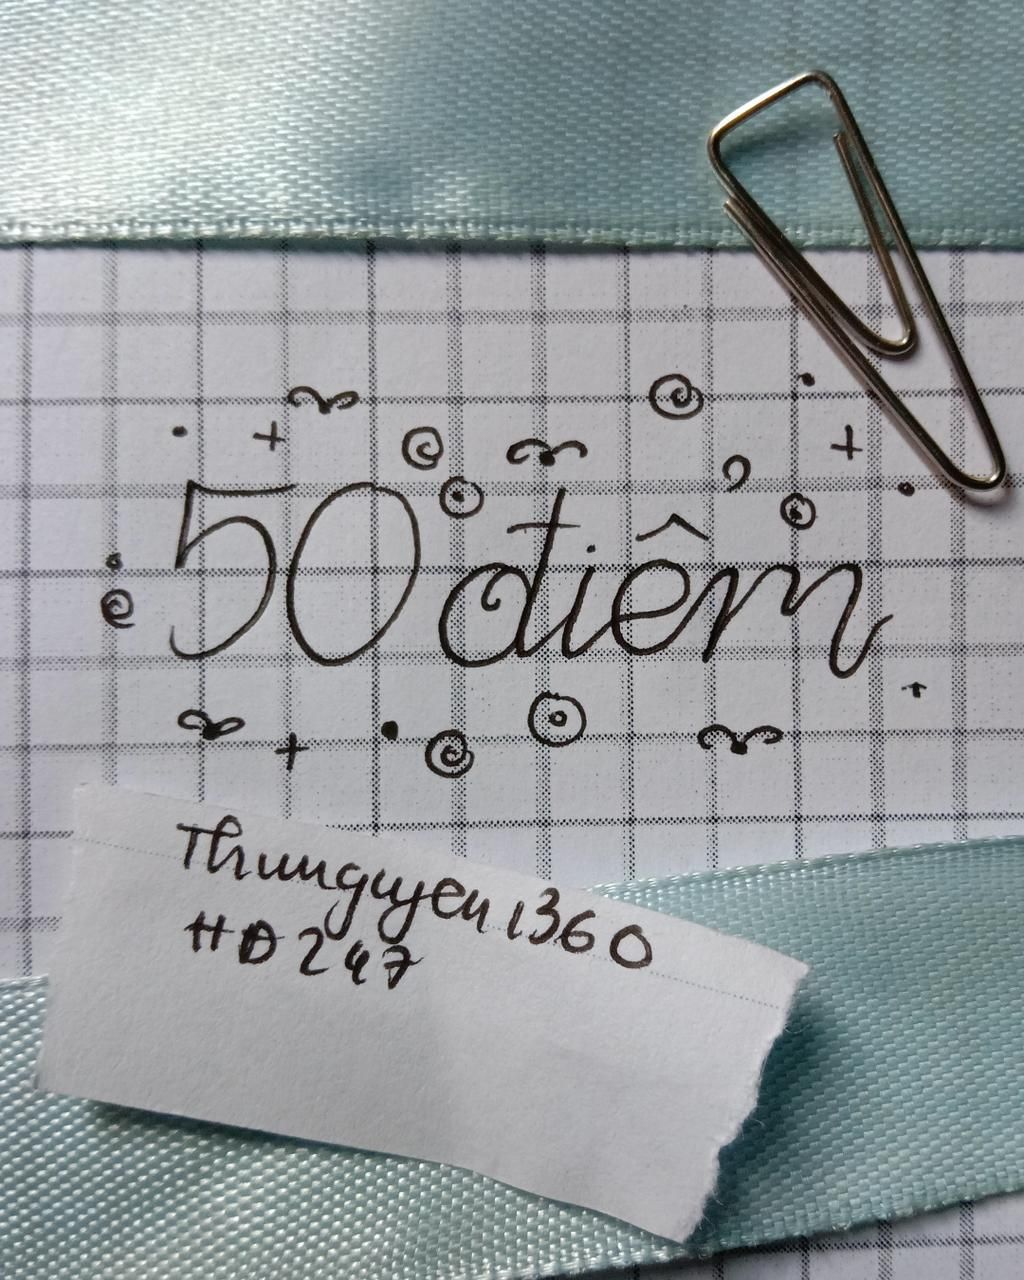 50 điểm
Thunguyen1360
HD247